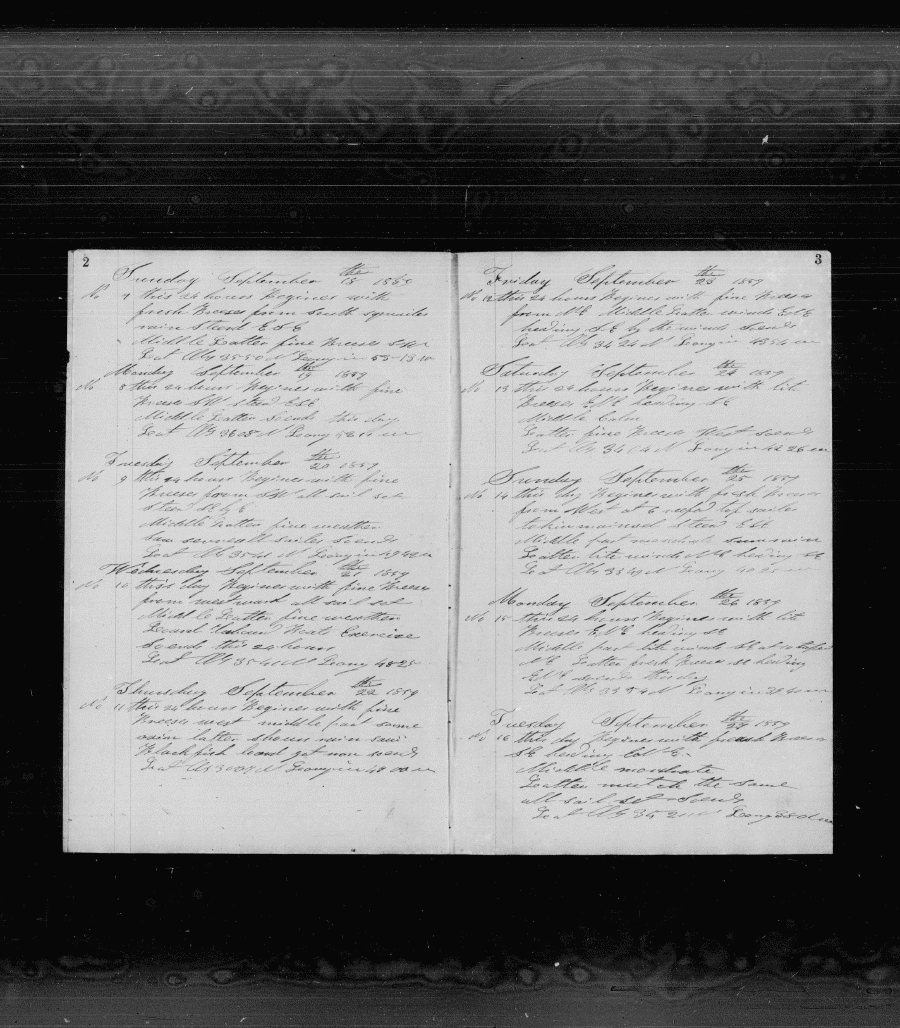 2
Sunday September 18th 1859
No 7 this 24 hours Begines with
fresh Breeses from South squailes
rain steard E S E
Middle Latter fine Breese
Lat By 35 50 N Longin 53 13 W
Monday September 19th 1859
No 8 this 24 hours Begines with fine
Breese S W steard E S E
Middle Latter Soends this day
Lat By N Long
Tuesday September 20th 1859
No 9 this 24 hours Begines with fine
Breese from S W all sail set
steard E by E
Middle Latter fine weather
Saw severeal sailes So ends
Lat By 35 41 N Longin
Wednesday September 21th 1859
No 10 this day Begines with fine Breese
from all sail set
Middle Latter fine weather
Boats Exercise
So ends this 24 hours
Lat By 35 41 N Long 48 25
Thursday September 22th 1859
No 11 this 24 hours Begines with fine
Breese west middle part same
again latter shours rain saw
Blackfish got non soends
Lat By N Longin 48 00 W
3
Friday September 23th 1859
No 12 this 24 hours Begines with fine Breese
from N E Middle Latter winds E N E
heading S E by the winds Soends
Lat By 34 24 N Longin 43 54 W
Saturday September 24th 1859
No 13 this 24 hours Begines with lite
Breese E N E heading S E
Middle Calm
Latter fine Breese West soends
Lat By 34 04 N Longin 42 26 W
Sunday September 25th 1859
No 14 this day Begines with fresh Breese
from West at 6 reefd top sailes
tokin mainsail steard E S E
Middle part moderate some rain
Latter lite winds N E heading S E
Lat By 33 49 N Long 40 20 W
Monday September 26th 1859
No 15 this 24 hours Begines with lite
Breese E N E heading S E
Middle part lite winds S E at 10
N E Latter fresh Breese heading
soends this day
Lat By 33 54 N Longin 39 W
Tuesday September 27th 1859
No 16 this day Begines with freash Breese
S E heading
Middle moderate
Latter mutch the same
all sail set Soends
Lat By 35 21 N Long 38 01 W